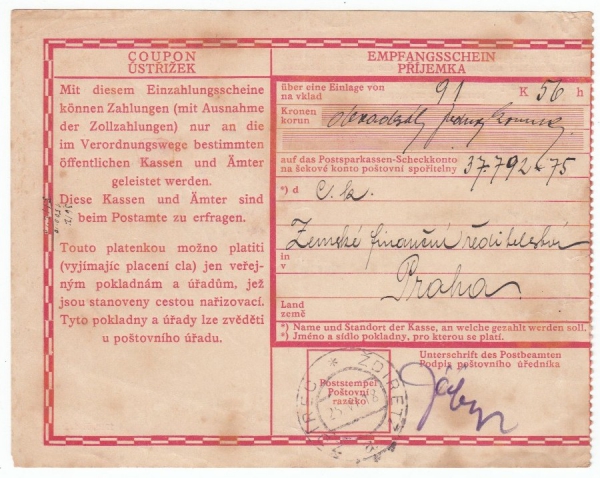 COUPON
ÚSTŘIŽEK
Mit diesem Einzahlungsscheine
können Zahlungen (mit Ausnahme
der Zollzahlungen) nur an die
im Verordnungswege bestimmten
öffentlichen Kassen und Ämter
geleistet werden.
Diese Kassen und Ämter sind
beim Postamte zu erfragen.
Touto platenkou možno platiti
(vyjímajíc placení cla) jen veřej-
ným pokladnám a úřadům, jež
jsou stanoveny cestou nařizovací.
Tyto pokladny a úřady lze zvěděti
u poštovního úřadu.
EMPFANGSSCHEIN
PŘIJEMKA
über eine Einlage von
na vklad
91 K 56 h
Kronen
korun
auf das Postsparkassen-Scheckkonto
na šekové konto poštovní spořitelny
37.792-75
*) d C. k.
Zemské finanční ředitelství
in
v
Praha
Land
země
*) Name und Standort der Kasse, an welche gezahlt werden soll.
*) Jméno a sídlo pokladny, pro kterou se platí.
Poststempel
Poštovní
razítko
ŽDIRETZ
Unterschrift des Postbeamten
Podpis poštovního úředníka